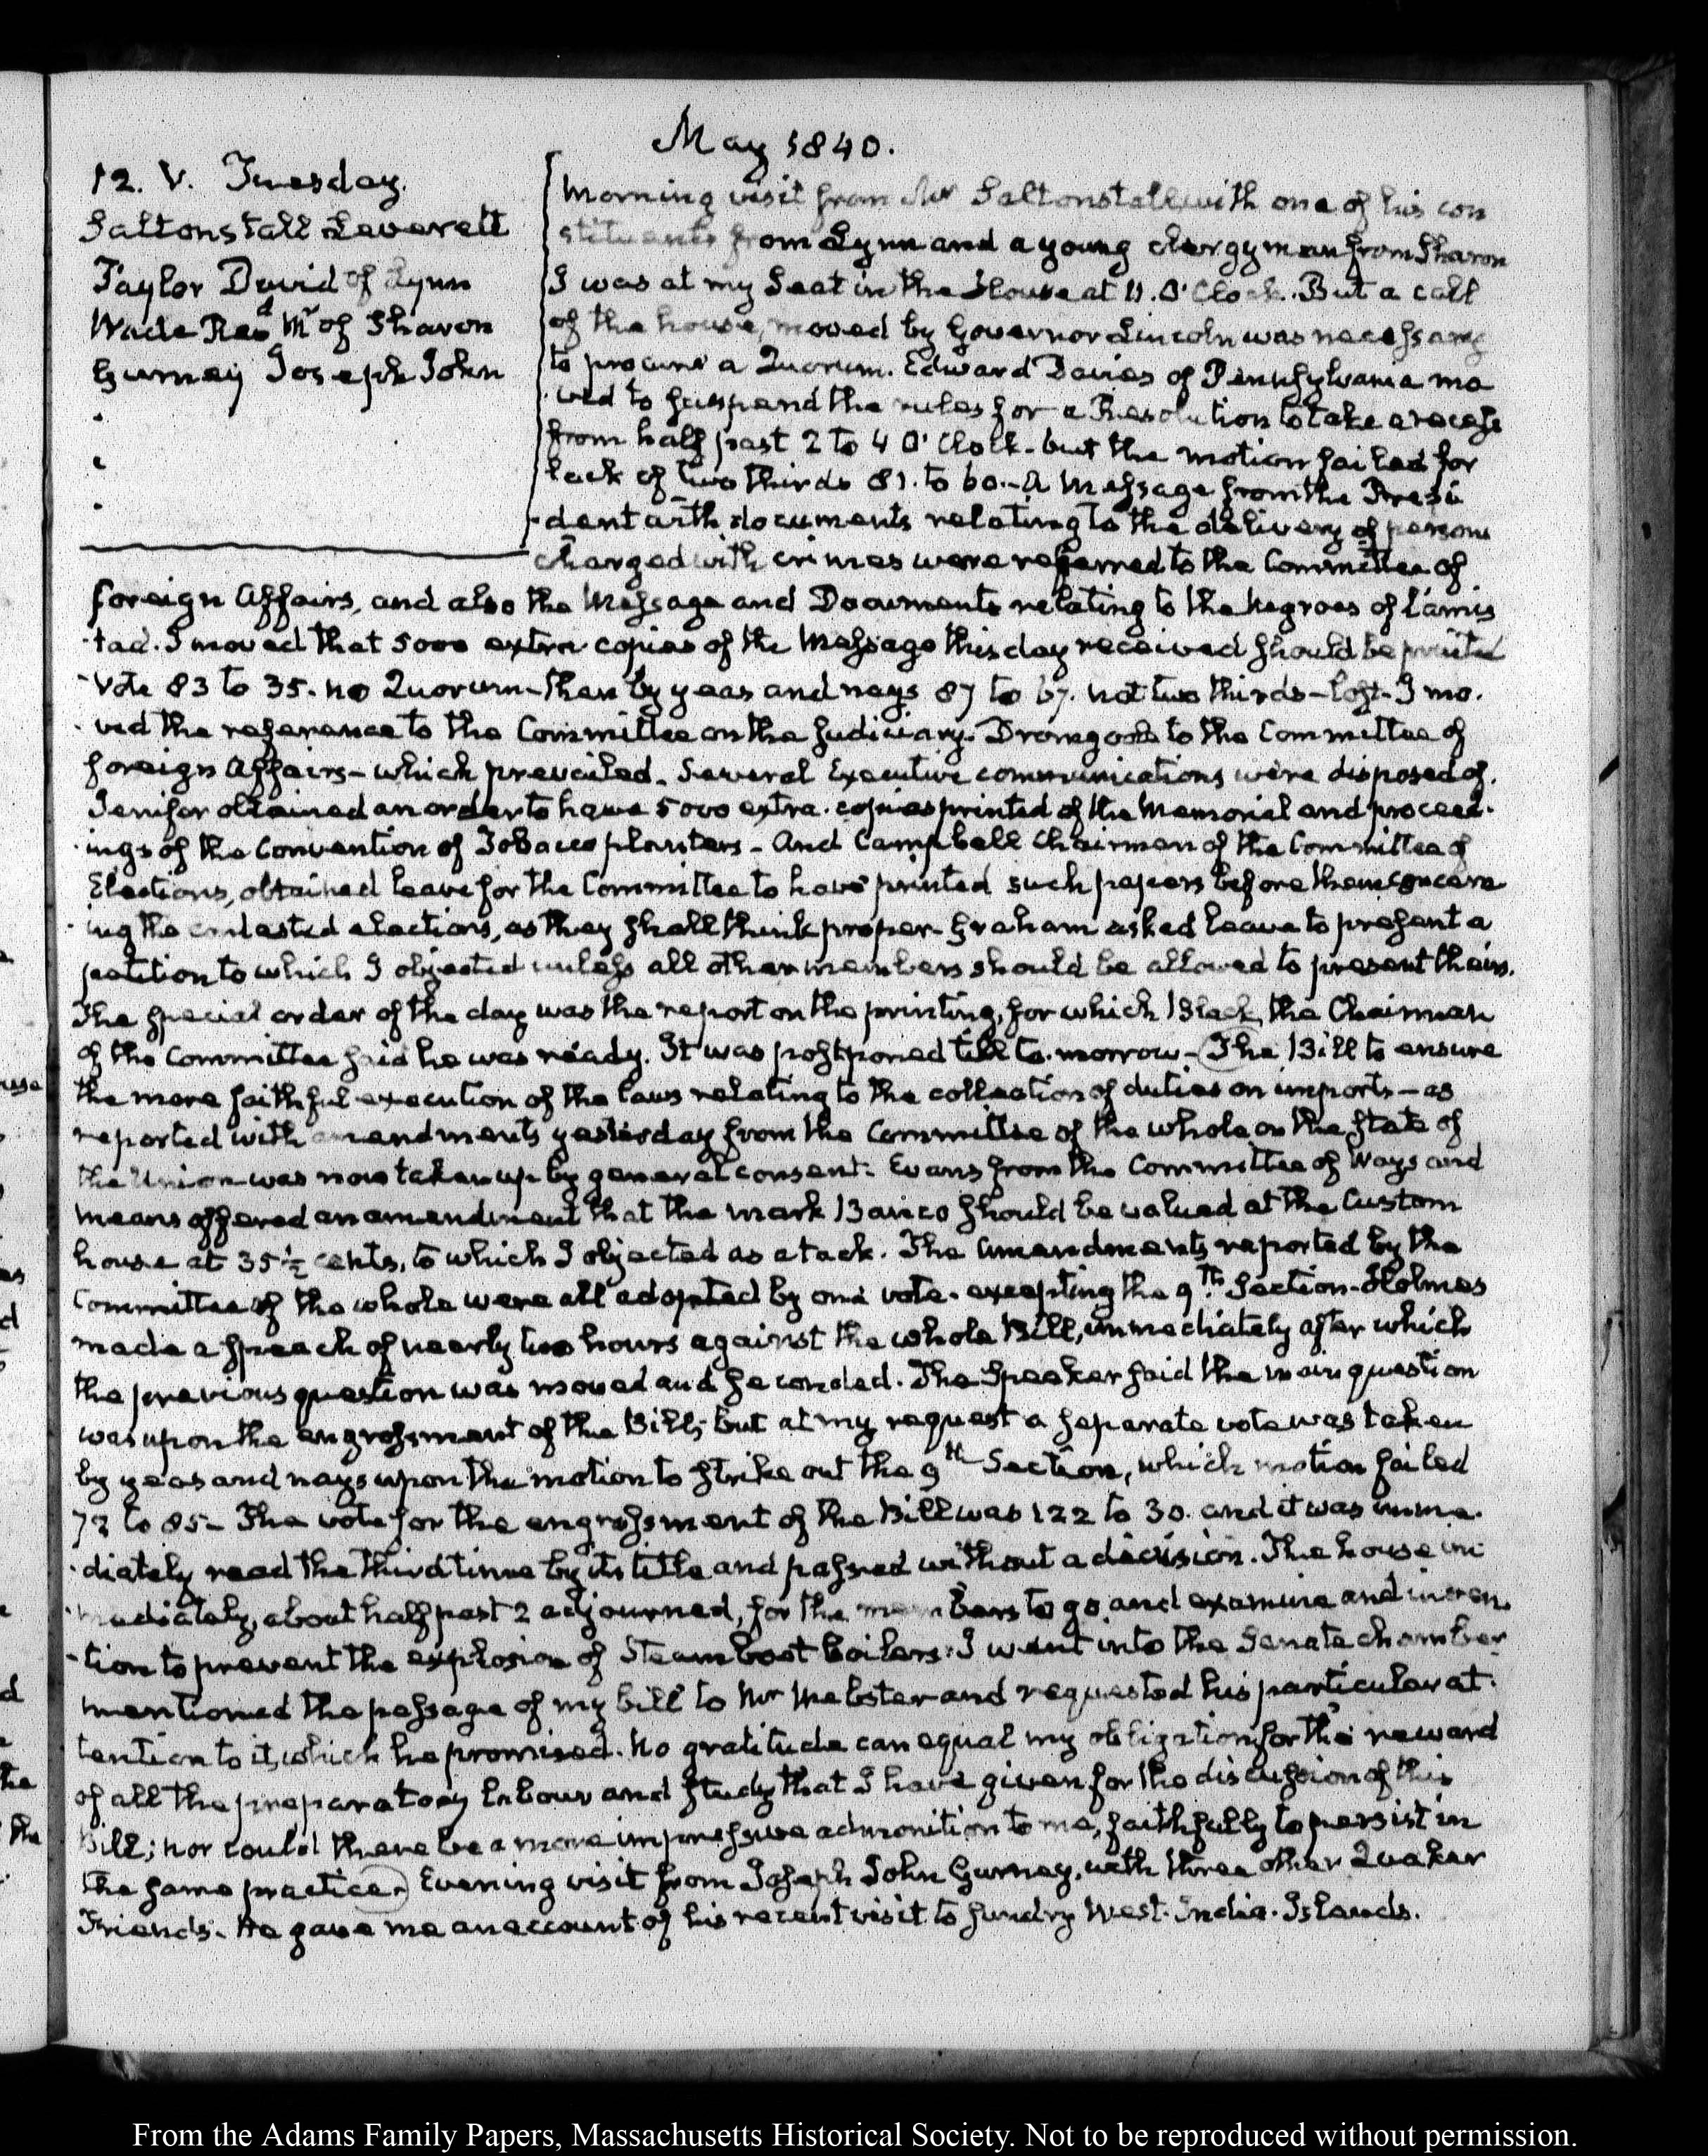 May 1840.
12. V. Tuesday.
Saltonstall Leverett
Taylor David of Lynn
Wade Revd Mr of Sharon
Gurney Joseph John
Morning visit from Mr Saltonstall with one of his con
stituents from Lynn and a young clergyman from Sharon
I was at my Seat in the House at 11. O'Clock. But a call
of the house, moved by Governor Lincoln was necessary
to procure a Quorum. Edward Davies of Pennsylvania mo
ved to suspend the rules for a Resolution to take a recess
from half past 2 to 4 O'Clock. but the motion failed for
lack of two thirds 81. to 60.- A Message from the Presi
-dent with documents relating to the delivery of persons
charged with crimes were referred to the Committee of
foreign Affairs, and also the Message and Documents relating to the Negroes of l'Amis
-tad. I moved that 5000 extra copies of the Message this day received should be printed
Vote 83 to 35. no Quorum- then by yeas and nays 87 to 67. not two thirds- lost- I mo.
-ved the reference to the Committee on the Judiciary. Dromgoole to the Committee of
foreign Affairs- which prevailed. Several Executive communications were disposed of.
Jenifer obtained an order to have 5000 extra copies printed of the Memorial and proceed-
-ings of the Convention of Tobacco planters- And Campbell Chairman of the Committee of
Elections, obtained leave for the Committee to have printed such papers before them concern
-ing the contested elections, as they shall think proper- Graham asked leave to present a
petition to which I objected unless all other members should be allowed to present theirs.
The special order of the day was the report on the printing, for which Black, the Chairman
of the Committee said he was ready. It was postponed till to-morrow- The Bill to ensure
the more faithful execution of the laws relating to the collection of duties on imports- as
reported with amendments yesterday from the Committee of the whole on the state of
the Union was now taken up by general consent. Evans from the Committee of Ways and
Means offered an amendment that the mark Banco should be valued at the Custom
house at 35½ cents, to which I objected as a tack. The Amendments reported by the
Committee of the whole were all adopted by one vote- excepting the 9th Section- Holmes
made a speech of nearly two hours against the whole Bill, immediately after which
the previous question was moved and seconded. The Speaker said the main question
was upon the engrossment of the Bill; but at my request a separate vote was taken
by yeas and nays upon the motion to strike out the 9th Section, which motion failed
72 to 85- The vote for the engrossment of the Bill was 122 to 30. and it was imme-
-diately read the third time by its title and passed without a division. The house im
-mediately, about half past 2 adjourned, for the members to go and examine and inven.
-tion to prevent the explosion of Steam boat boilers. I went into the Senate chamber
mentioned the passage of my bill to Mr Webster and requested his particular at-
tention to it, which he promised. No gratitude can equal my obligation for the reward
of all the preparatory labour and study that I have given for the discussion of this
Bill; nor could there be a more impressive admonition to me, faithfully to persist in
the same practice. Evening visit from Joseph John Gurney, with three other Quaker
Friends. He gave me an account of his recent visit to sundry West-India-Islands.
From the Adams Family Papers, Massachusetts Historical Society. Not to be reproduced without permission.